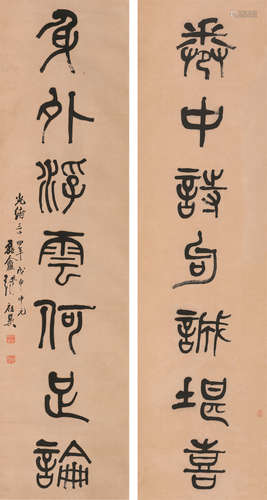 卷中詩句誠堪喜
身外浮雲何足論
光緒三十四年戊申中元